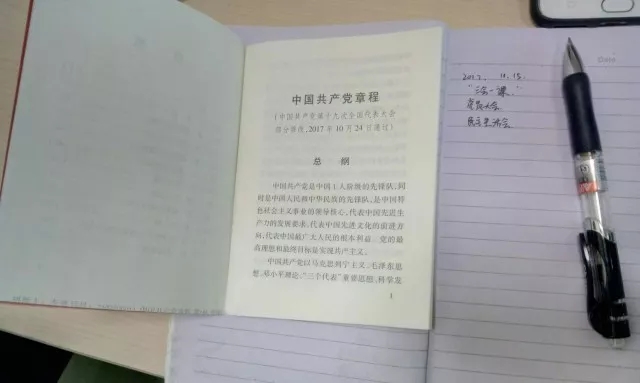 中国共产党章程
（中国共产党第十九次全国代表大会
部分修改，2017年10月24日通过）
总 纲
中国共产党是中国工人阶级的先锋队，同
时是中国人民和中华民族的先锋队，是中国特
色社会主义事业的领导核心，代表中国先进生
产力的发展要求，代表中国先进文化的前进方
向，代表中国最广大人民的根本利益。党的最
高理想和最终目标是实现共产主义。
中国共产党以马克思列宁主义、毛泽东思
想、邓小平理论、“三个代表”重要思想、科学发
1
Date
2017. 11. 15.
党员大会
民主生活会